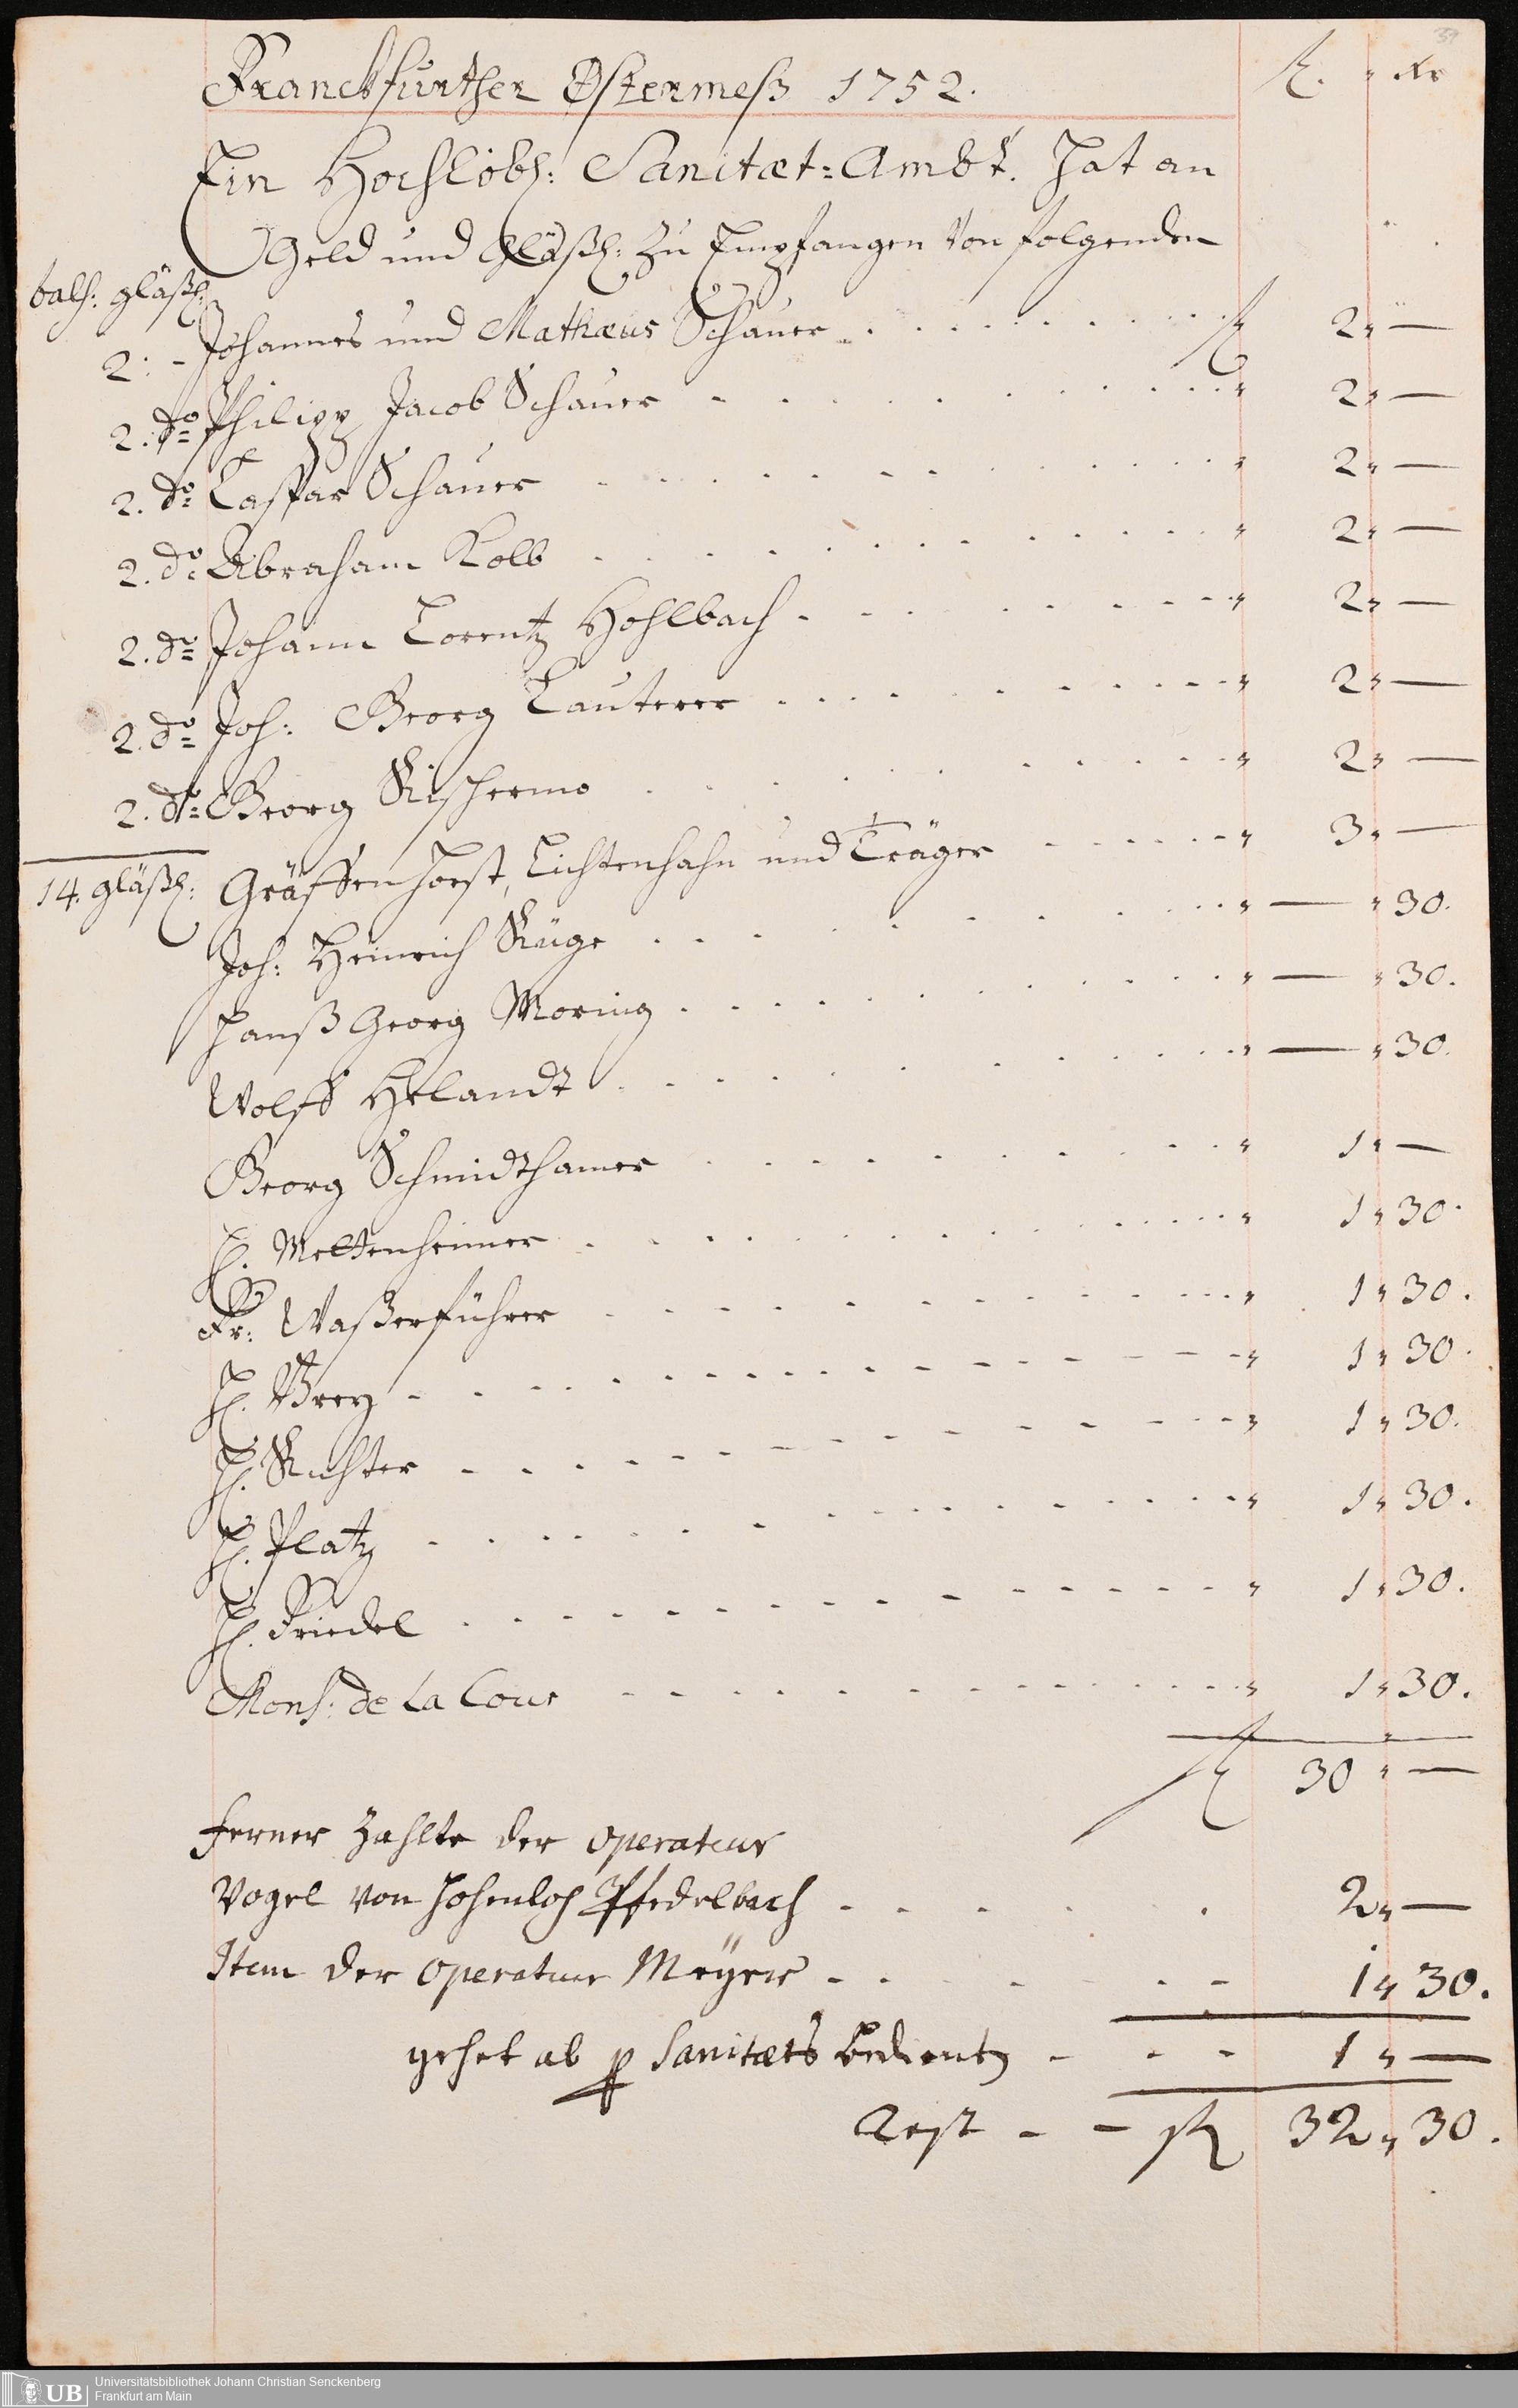 39
Franckfurther Ostermeß 1752. fl. " Xr
Ein Hochlöbl: Sanitæt=Ambt. hat an
Geld und Gläßl: zu Empfangen von folgenden
bals: gläßl:
2: - Johannes und Mathæus Schauer . . . . . . . . . fl 2 " —
2. do= Philipp Jacob Schauer - . . . . . . . . . " 2 " —
2. do= Caspar Schauer . . . . . . . . . . " 2 " —
2. do: Abraham Kolb . . . . . . . . . . " 2 " —
2. do= Johann Lorentz Hohlbach . . . . . . . . " 2 " —
2. do= Joh: Georg Lauterer . . . . . . . . . " 2 " —
2. do= Georg . . . . . . . . . " 2 " —
14. gläßl: Gräffenhorst, Lichtenhahn und Träger . . . . . . " 3 " —
Joh: Heinrich Rüge . . . . . . . . . " — " 30.
Hanß Georg Moring . . . . . . . . . " — " 30.
Wolff Helandt . . . . . . . . . . " — " 30.
Georg Schmidthamer . . . . . . . . . " 1 " —
H. Meltenheimer . . . . . . . . . . " 1 " 30.
Fr: Waßerführer . . . . . . . . . . " 1 " 30.
H. Brey - . . . . . . . . . . . " 1 " 30.
H. Richter - . . . . . . . . . . " 1 " 30.
H. Platz . . . . . . . . . . . " 1 " 30.
H. Friedel . . . . . . . . . . . " 1 " 30.
Mons: de La Cour - . . . . . . . . . " 1 " 30.
fl 30 " —
ferner zahlte der operateur
Vogel von Hohenloh Pfedelbach - . . . . . 2 " —
Item der operateur Meÿer - . . . . . - 1 " 30.
gehet ab p Sanitæts bedientz - - - 1 " —
Rest - - fl 32 " 30.
UB Universitätsbibliothek Johann Christian Senckenberg
Frankfurt am Main